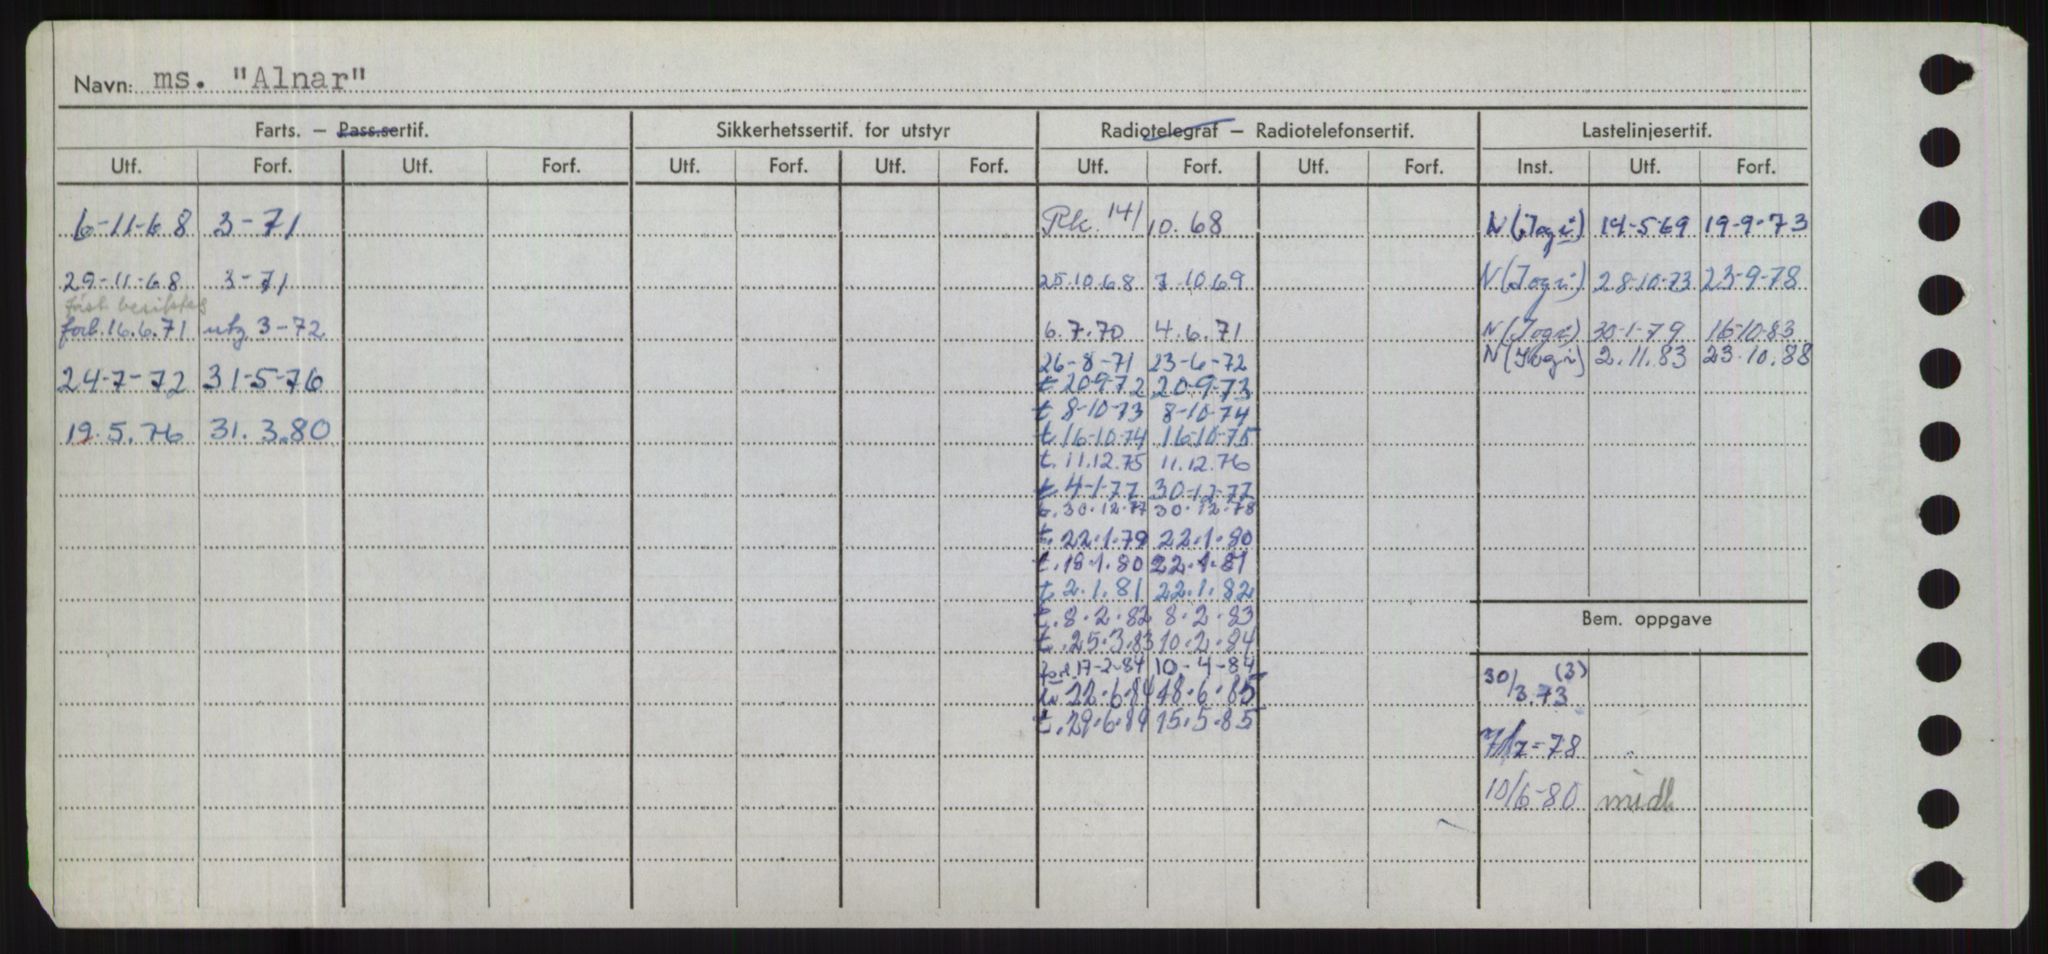 Navn: ms. "Alnar"
Farts. — Pass.sertif. Sikkerhetssertif. for utstyr Radiotelegraf — Radiotelefonsertif. Lastelinjesertif.
Utf. Forf. Utf. Forf. Utf. Forf. Utf. Forf. Utf. Forf. Utf. Forf. Inst. Utf. Forf.
6-11-68 3-71 Rk. 14/10.68 N (Jogi) 14-5-69 19-9-73
29-11-68 3-71 25.10.68 7.10.69 N (Jogi) 28-10-73 23-9-78
forl. 16.6.71 utg 3-72 6.7.70 4.6.71 N (Jogi) 30-1-79 16-10-83
26-8-71 23-6-72 N (Jogi) 2.11.83 23.10.88
24-7-72 31-5-76 t 20-9-72 20-9-73
t 8-10-73 8-10-74
19.5.76 31.3.80 t 16-10-74 16-10-75
t. 11.12.75 11.12.76
t 4-1-77 30-12-77
t. 30.12.77 30.12.78
t. 22.1.79 22.1.80
t. 18.1.80 22.1.81
t 2.1.81 22.1.82
t. 8.2.82 8.2.83
Bem. oppgave
t. 25.3.83 10.2.84
17-2-84 10-4-84
30/3.73 (3)
22.6.84 18.6.85
t. 29.6.84 15.5.85
-78
10/6-80 midl